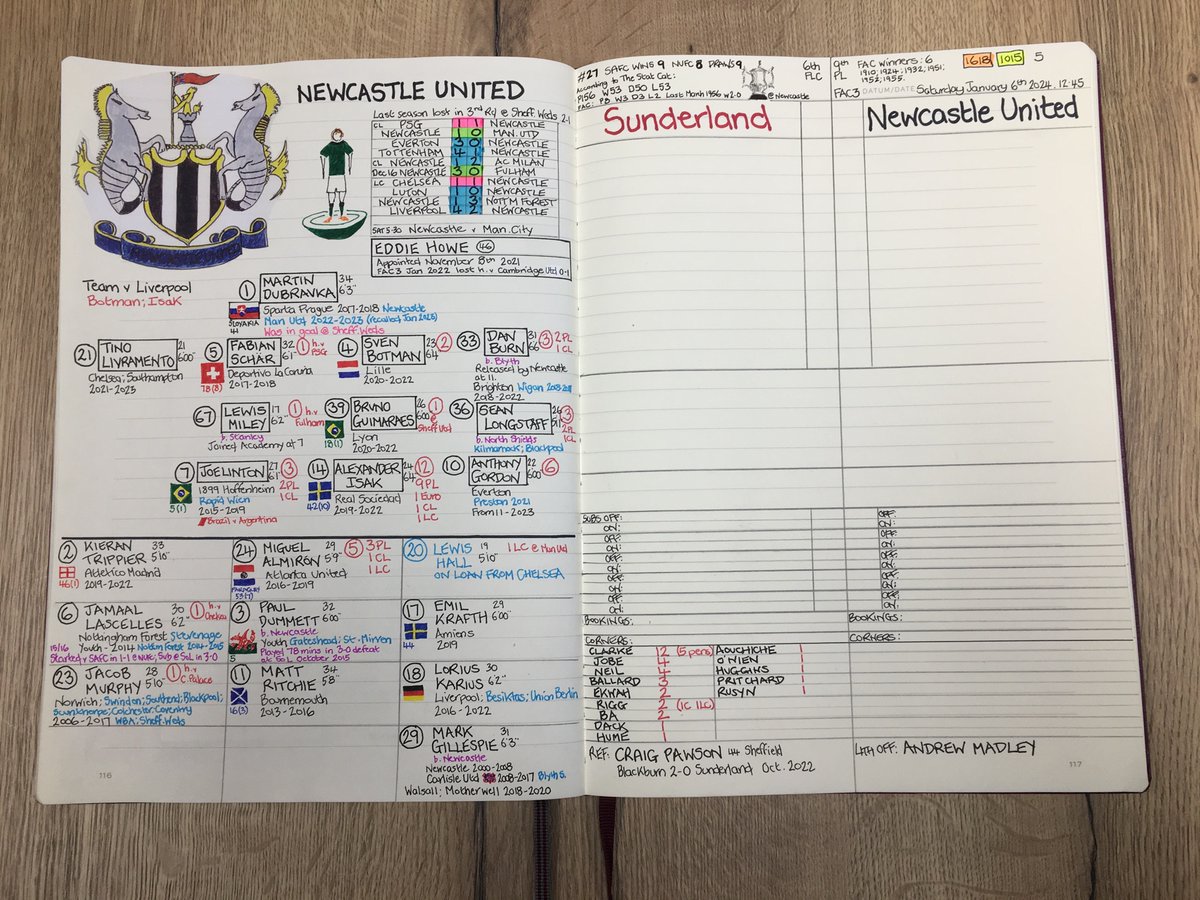 NEWCASTLE UNITED
Last season lost in 3rd Rd @ Sheff. Weds 2-1
CL PSG 1 1 NEWCASTLE
NEWCASTLE 1 0 MAN. UTD
EVERTON 3 0 NEWCASTLE
TOTTENHAM 4 1 NEWCASTLE
CL NEWCASTLE 1 2 AC MILAN
Dec 16 NEWCASTLE 3 0 FULHAM
LC CHELSEA 1 1 NEWCASTLE
LUTON 1 0 NEWCASTLE
NEWCASTLE 1 3 NOTT'M FOREST
LIVERPOOL 4 2 NEWCASTLE
SAT 5.30 Newcastle v Man. City
EDDIE HOWE 46
Appointed November 8th 2021
FAC3 Jan 2022 lost h.v Cambridge Utd 0-1
Team v Liverpool
Botman; Isak
1 MARTIN DUBRAVKA 34 6'3"
SLOVAKIA 41
Sparta Prague 2017-2018 Newcastle
Man Utd 2022-2023 (recalled Jan 2023)
Was in goal @ Sheff. Weds
21 TINO LIVRAMENTO 21 6'00"
Chelsea; Southampton
2021-2023
5 FABIAN SCHÄR 32 6'1" 1 h.v PSG
78 (8)
Deportivo La Coruna
2017-2018
4 SVEN BOTMAN 23 6'4" 2
Lille
2020-2022
33 DAN BURN 31 6'6" 3 2PL 1CL
b. Blyth
Released by Newcastle
at 11.
Brighton Wigan
2018-2022
67 LEWIS MILEY 17 6'2" 1 h.v Fulham
b. Stanley
Joined Academy at 7
39 BRUNO GUIMARAES 26 6'00" 1 @ Sheff Utd
18 (1)
Lyon
2020-2022
36 SEAN LONGSTAFF 26 5'11" 3 2PL 1CL
b. North Shields
Kilmarnock; Blackpool
7 JOELINTON 27 6'1" 3
2PL
1CL
5 (1)
1899 Hoffenheim
Rapid Wien
2015-2019
Brazil v Argentina
14 ALEXANDER ISAK 24 6'4" 12
9 PL
1 Euro
1 CL
1 LC
42 (10)
Real Sociedad
2019-2022
10 ANTHONY GORDON 22 6'00" 6
Everton
Preston 2021
From 11 - 2023
2 KIERAN TRIPPIER 33 5'10"
46 (1)
Atletico Madrid
2019-2022
24 MIGUEL ALMIRÓN 29 5'9" 5 3PL 1CL 1LC
PARAGUAY 53 (7)
Atlanta United
2016-2019
20 LEWIS HALL 19 5'10" 1 LC @ Man Utd
ON LOAN FROM CHELSEA
6 JAMAAL LASCELLES 30 6'2" 1 h.v Chelsea
Nottingham Forest Stevenage
Youth - 2014 Nottm Forest 2014-2015
15/16 Started v SAFC in 1-1 @ NUFC; Sub @ SoL in 3-0
3 PAUL DUMMETT 32 6'00"
b. Newcastle
Youth Gateshead; St. Mirren
Played 78 mins in 3-0 defeat
at SoL October 2015
5
17 EMIL KRAFTH 29 6'00"
44
Amiens
2019
23 JACOB MURPHY 28 5'10" 1 h.v C. Palace
Norwich; Swindon; Southend; Blackpool;
Scunthorpe; Colchester; Coventry
2006-2017 WBA; Sheff. Weds
11 MATT RITCHIE 34 5'8"
16 (3)
Bournemouth
2013-2016
18 LORIUS KARIUS 30 6'2"
Liverpool; Besiktas; Union Berlin
2016-2022
29 MARK GILLESPIE 31 6'3"
b. Newcastle
Newcastle 2000-2008
Carlisle Utd 2008-2017 Blyth S.
Walsall; Motherwell 2018-2020
116
#27 SAFC WINS 9 NUFC 8 DRAWS 9
According to The Stat Cat:
P156 W53 D50 L53
FAC: P8 W3 D3 L2 Last March 1956 W2-0 @ Newcastle
6th FLC
9th PL
FAC Winners: 6
1910; 1924; 1932; 1951;
1952; 1955.
1618 1015 5
FAC3 DATUM/DATE Saturday January 6th 2024. 12.45
Sunderland
Newcastle United
SUBS OFF:
ON:
OFF:
ON:
OFF:
ON:
OFF:
ON:
OFF:
ON:
BOOKINGS:
CORNERS:
OFF:
ON:
OFF:
ON:
OFF:
ON:
OFF:
ON:
OFF:
ON:
BOOKINGS:
CORNERS:
CLARKE 12 (5 pens)
JOBE 4
NEIL 4
BALLARD 3
EKWAH 2
RIGG 2 (1C 1LC)
BA 2
DACK 1
HUME 1
AOUCHICHE 1
O'NIEN 1
HUGGINS 1
PRITCHARD 1
RUSYN 1
REF: CRAIG PAWSON 44 Sheffield
Blackburn 2-0 Sunderland Oct. 2022
4TH OFF: ANDREW MADLEY
117